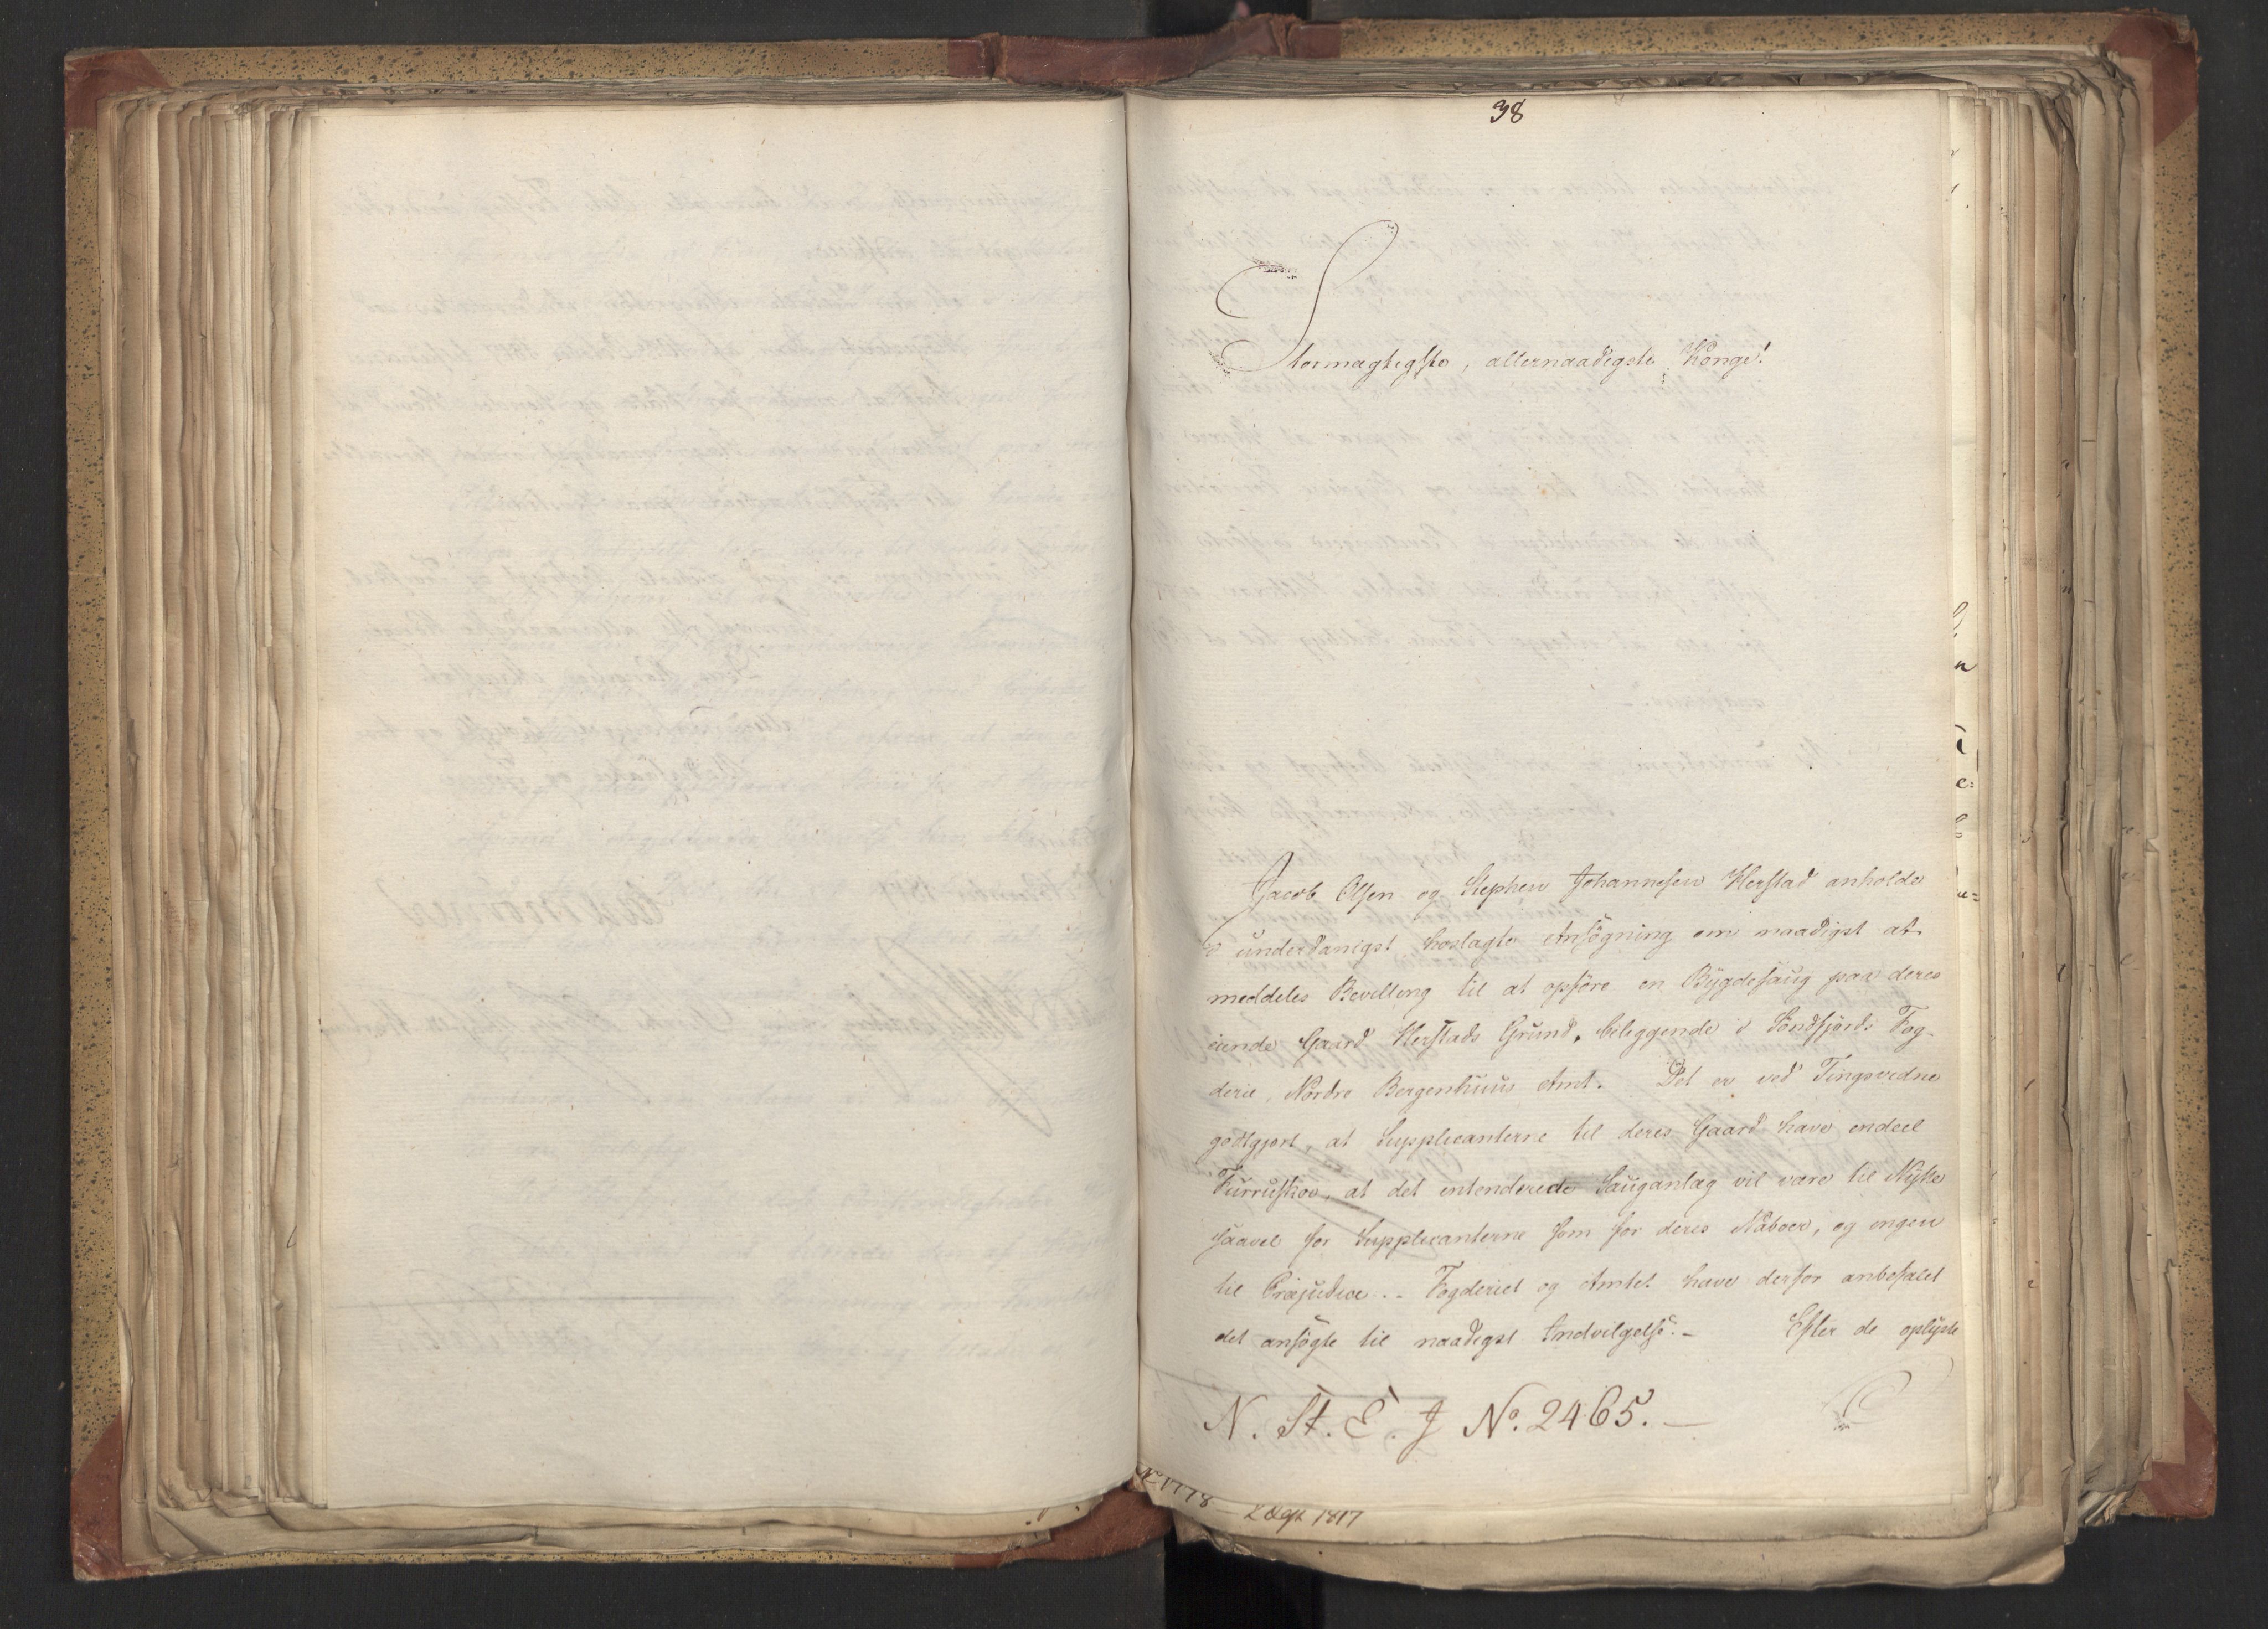 38
Stormægtigste, allernaadigste Konge!
Jacob Olsen og Stephen Johannesen Herstad anholde
i underdanigst hoslagte Ansøgning om naadigst at
meddeles Bevilling til at opføre en Bygdesaug paa deres
eiende Gaard Herstads Grund, beliggende i Søndfjords Fog-
derie, Nordre Bergenhuus Amt. Det er ved Tingsvidne
godtgjort, at Supplicanterne til deres Gaard have endeel
Furruskov, at det intenderede Sauganlæg vil være til Nytte
saavel for Supplicanterne som for deres Naboer, og ingen
til Præjudice. - Fogderiet og Amtet have derfor anbefalet
det ansøgte til naadigst Indvilgelse. - Efter de oplyste
N. St. E. J No. 2465. -
2 Sept 1817